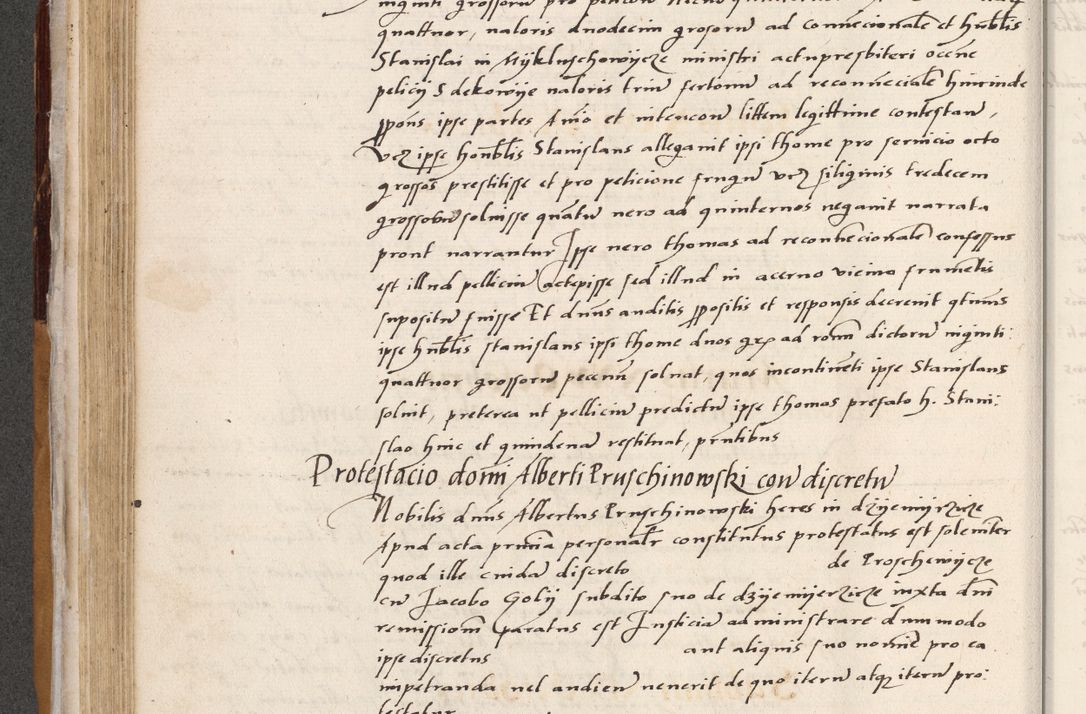 quattuor, valoris duodecim grosoru ad connecionale et hublis
Stanislai in Mykluschowycze ministri actu presbiteri occne
pelicij Sdekowije valoris triu fertonu ad reconneciale hincinde
ppons ipse partes Anio et intencou littem legittime contestau,
Vcz ipse honblis Stanislaus alleganit ipsi thome pro seruicio octo
grossos prestitisse et pro peticione frugu vcz siliginis tredecem
grossoru soluisse quatu uero ad quinternos negauit narrata
prout narrantur Ipse uero thomas ad reconnecionale confessus
est illud pelliciu actepisse sed illud in acerno vicino frumetis
supositu fuisse Et dnus auditis ppositis et responsis decreuit qtinus
ipse hnblis stanislaus ipsi thome duos grx ad ronm dictoru uiginti
quattuor grossoru pecunn soluat, quos incontineti ipse Stanislaus
soluit, preterea ut pelliciu predictu ipse thomas prefato h. Stani:
slao hinc et quindena restituat, prntibus
Protestacio domi Alberti Pruschinowski cou discretu
Nobilis dnus Albertus Pruschinowski heres in dzijemijerzicze
Apud acta prnia personalr constitutus protestatus est solemter
quod ille cuidam discreto de Proschewycze
cu Jacobo Golij subdito suo de dzijemijerzicze iuxta dni
remissionem paratus est Iusticia administrare dummodo
ipse discretus aut aliquis suo nomie pro ea
impetranda uel audieu uenerit de quo iteru atqz iteru pro:
testatur